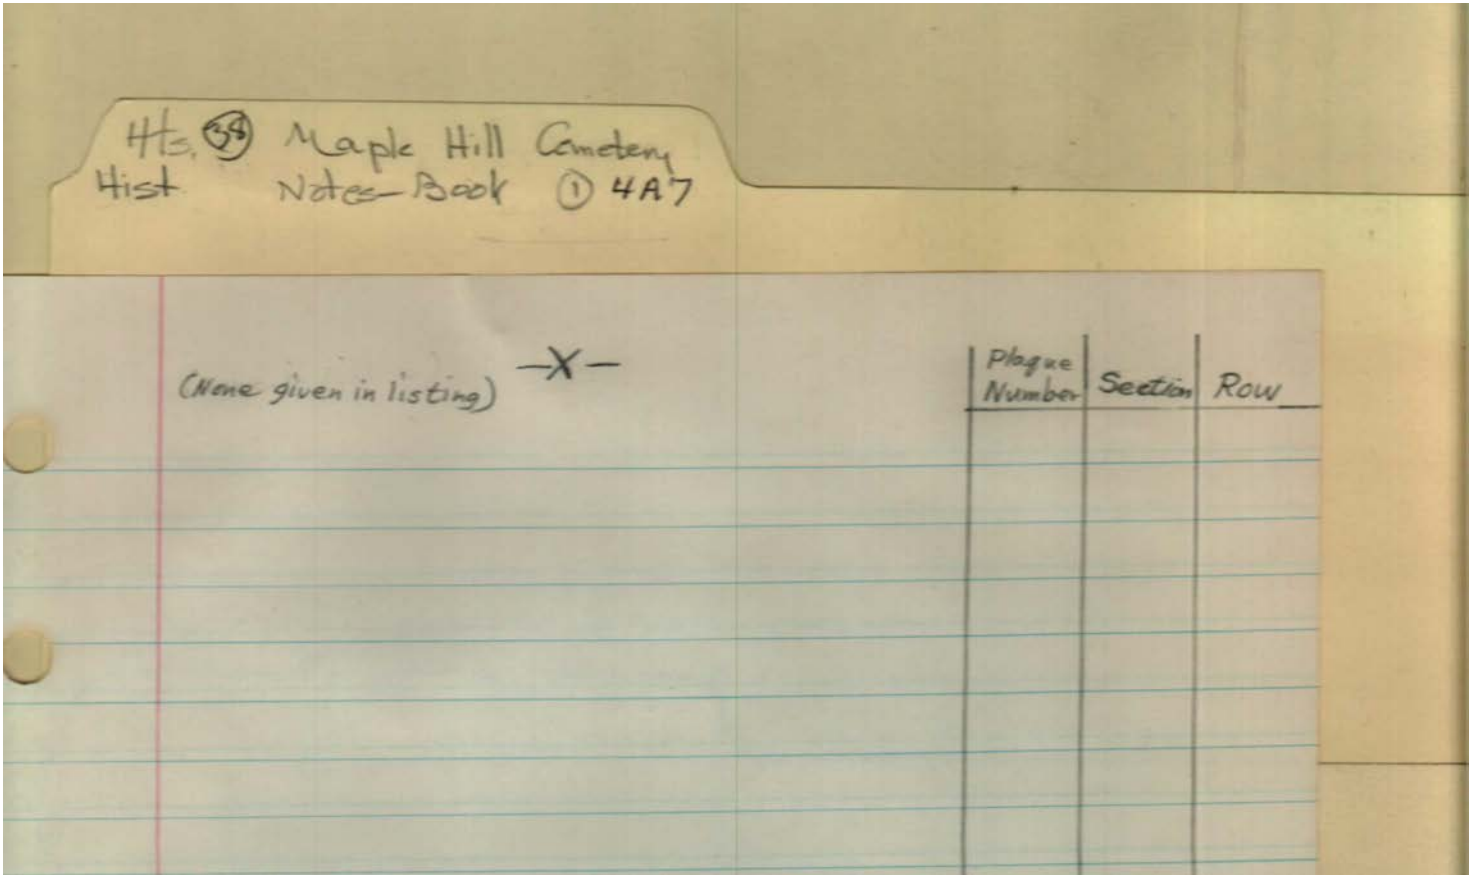 Hts. 38 Maple Hill Cemetery
Hist Notes-Book 1 4A7
-X-
(None given in listing)
Plaque Number Section Row